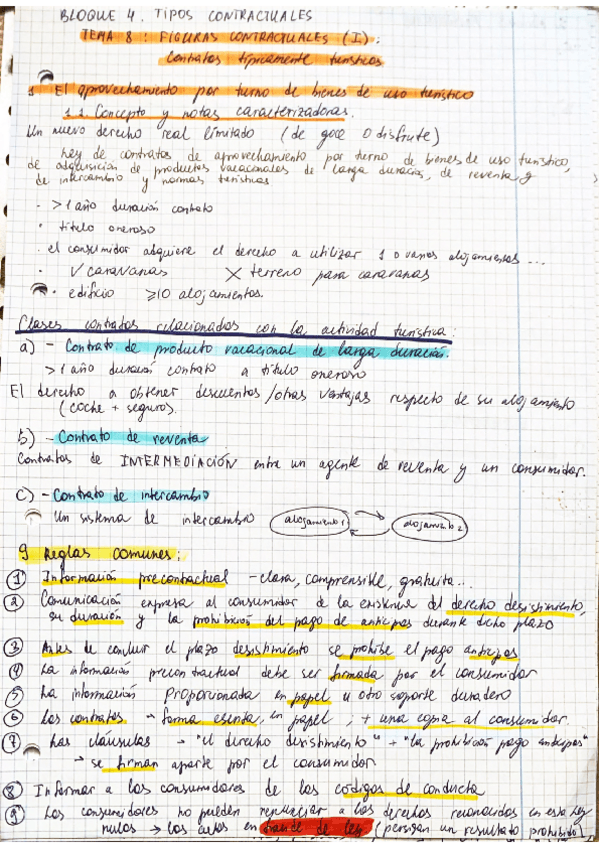 BLOQUE 4. TIPOS CONTRACTUALES
TEMA 8: FIGURAS CONTRACTUALES (I):
Contratos típicamente turísticos
1 El aprovechamiento por turno de bienes de uso turístico
1.1. Concepto y notas caracterizadoras.
Un nuevo derecho real limitado (de goce o disfrute)
ley de contratos de aprovechamiento por turno de bienes de uso turístico,
de adquisición de productos vacacionales de larga duración, de reventa y
de intercambio y normas turísticas
· >1 año duración contrato
· título oneroso
· el consumidor adquiere el derecho a utilizar 1 o varios alojamientos ...
· V caravanas X terreno para caravanas
· edificio ≥10 alojamientos.
Clases contratos relacionados con la actividad turística:
a) - Contrato de producto vacacional de larga duración.
>1 año duración contrato a título oneroso
El derecho a obtener descuentos/otras ventajas respecto de su alojamiento
(coche + seguros).
b) - Contrato de reventa
Contratos de INTERMEDIACIÓN entre un agente de reventa y un consumidor.
c) - Contrato de intercambio
Un sistema de intercambio alojamiento 1 alojamiento 2
9 Reglas comunes:
1 Información precontractual - clara, comprensible, gratuita...
2 Comunicación expresa al consumidor de la existencia del derecho desistimiento,
su duración y la prohibición del pago de anticipos durante dicho plazo
3 Antes de concluir el plazo desistimiento se prohíbe el pago anticipos
4 La información precontractual debe ser firmada por el consumidor
5 La información proporcionada en papel u otro soporte duradero
6 Los contratos → forma escrita, en papel; + una copia al consumidor.
7 Las cláusulas → "el derecho desistimiento" + "la prohibición pago anticipos"
→ se firman aparte por el consumidor
8 Informar a los consumidores de los códigos de conducta
9 Los consumidores no pueden renunciar a los derechos reconocidos en esta ley
nulos → los actos en fraude de ley (persigan un resultado prohibido)